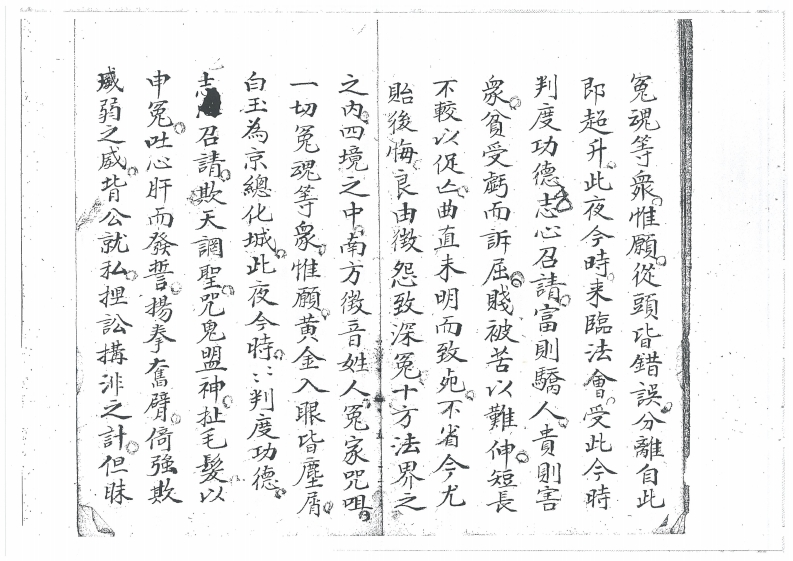 冤魂等衆惟願從頭皆錯誤分離自此
即超升此夜今時来臨法會受此今時
判度功德志心召請富則驕人貴則害
衆貧受虧而訴屈賤被苦以難伸短長
不較以促亡曲直未明而致死不省今尤
貽後悔良由徴怨致深冤十方法界之
之内四境之中南方徴音姓人冤家咒咀
一切冤魂等衆惟願黄金入眼皆塵屑
白玉為京總化城此夜今時〻判度功德
志心召請欺天調聖咒鬼盟神扯毛髮以
申冤吐心肝而發誓揚拳奮臂倚強欺
弱之威背公就私捏訟搆涉之計但昧